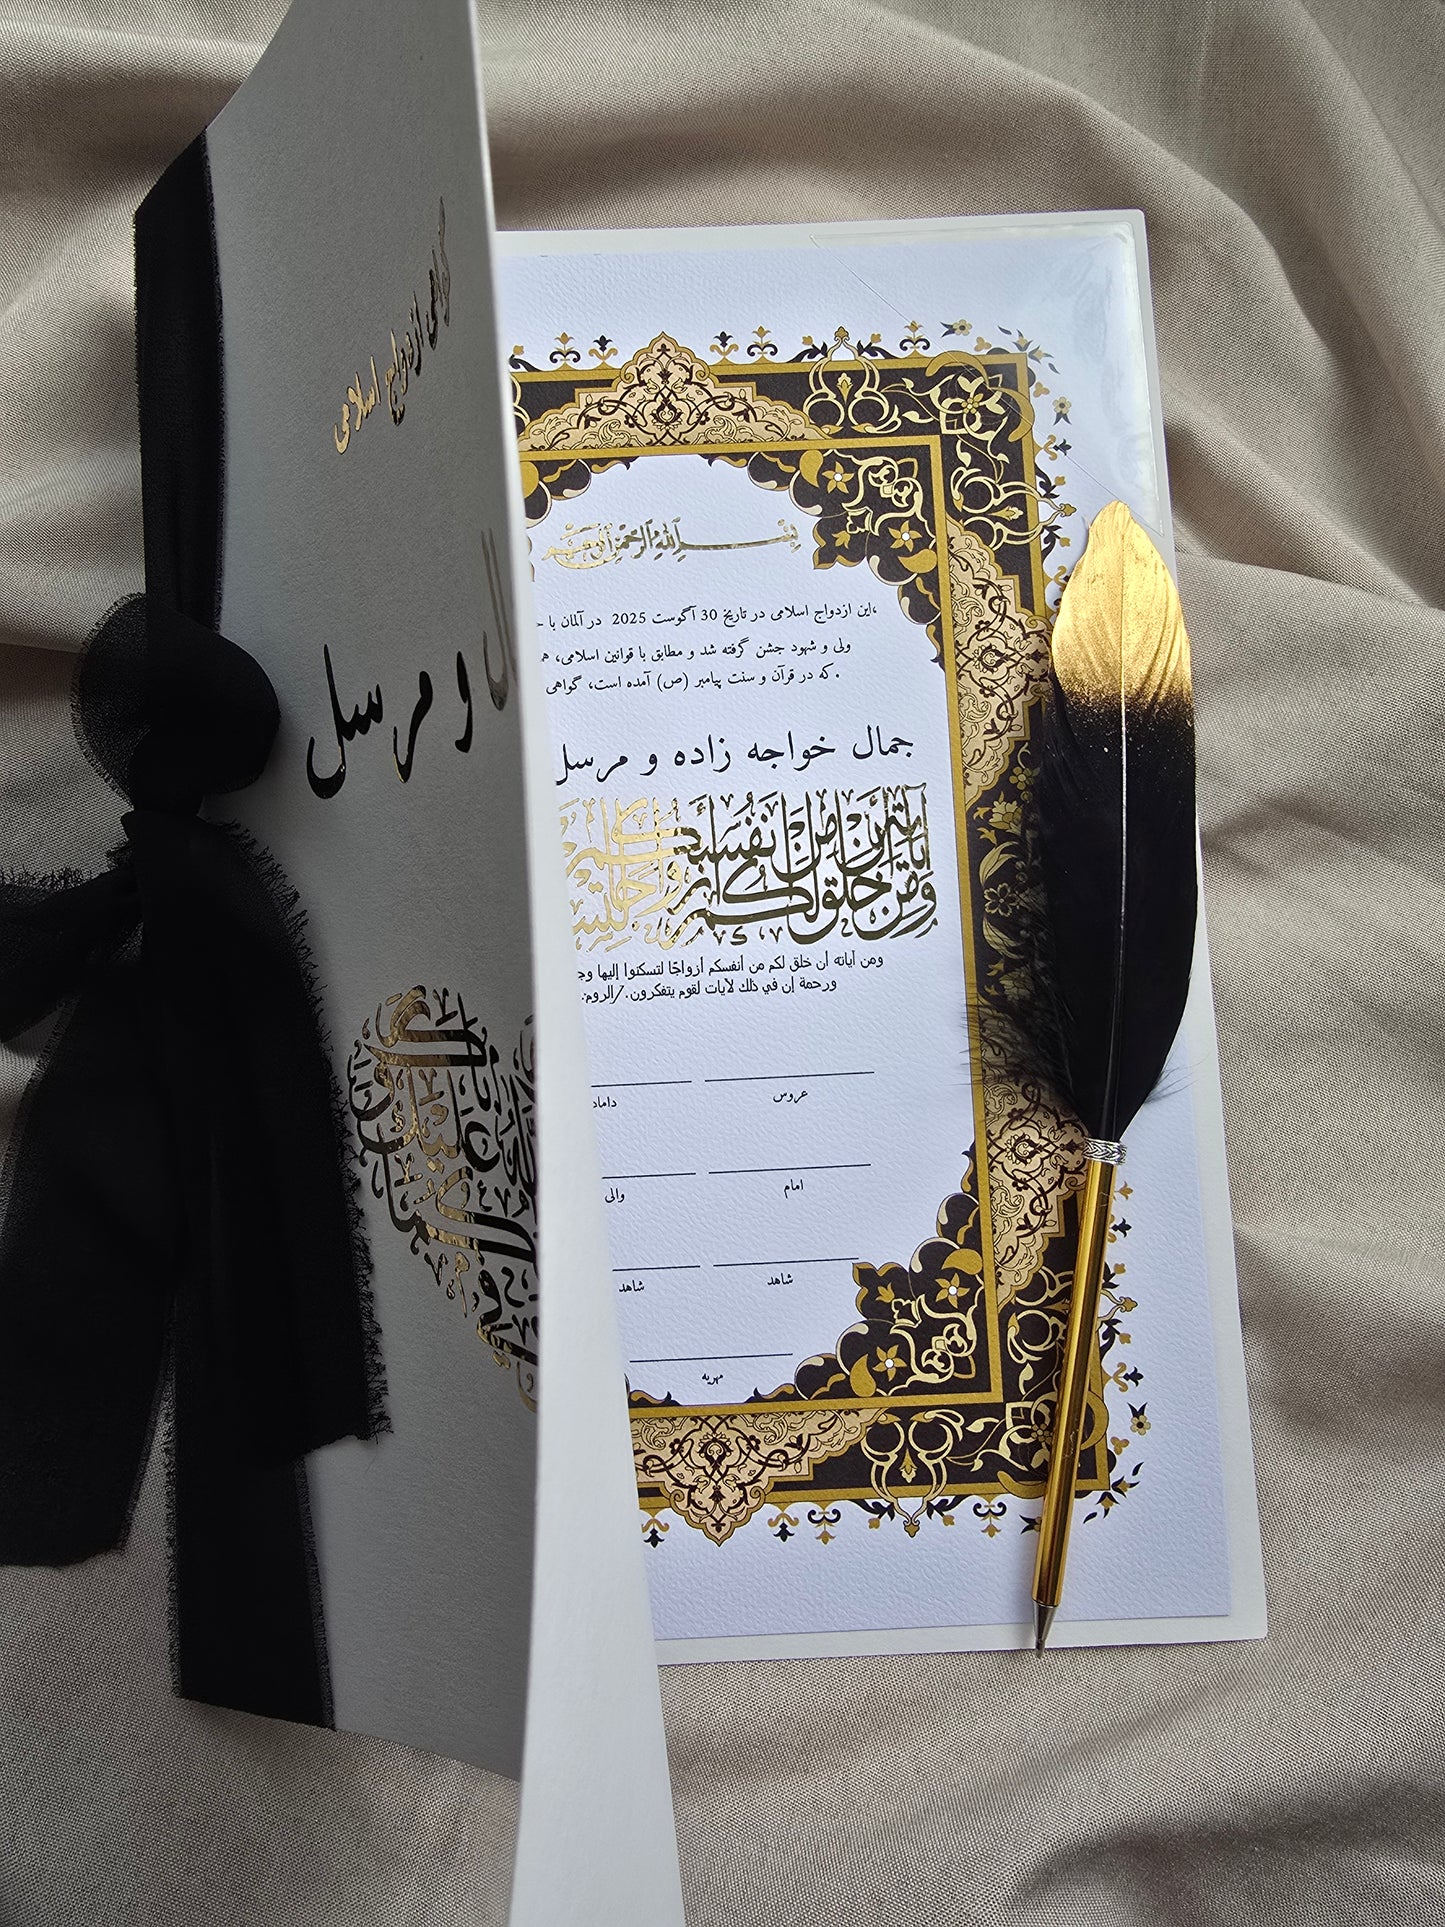 گواهی ازدواج اسلامی
و مرسل
بسم الله الرحمن الرحيم
این ازدواج اسلامی در تاریخ 30 آگوست 2025 در آلمان با
ولی و شهود جشن گرفته شد و مطابق با قوانین اسلامی،
که در قرآن و سنت پیامبر (ص) آمده است، گواهی
جمال خواجه زاده و مرسل
ومن آياته أن خلق لكم من أنفسكم أزواجا
ومن آياته أن خلق لكم من أنفسكم أزواجًا لتسكنوا إليها
ورحمة إن في ذلك لآيات لقوم يتفكرون./الروم:
عروس
داماد
امام
والی
شاهد
شاهد
مهریه